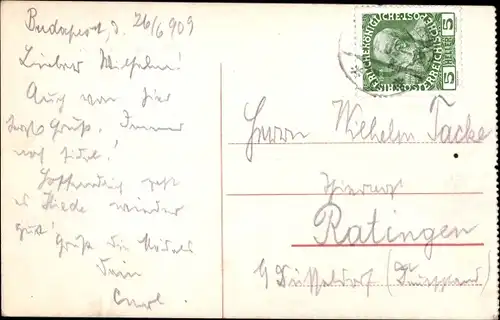 Budapest, d. 26/6 909
Lieber Wilhelm!
Auch von hier
herzl. Gruß. Immer
noch fidel!
Hoffentlich geht
es wieder
gut! Gruß die Mädels
Dein
Carl.
KAISERLICHE KÖNIGLICHE ÖSTERREICHISCHE POST
5 HELLER 5
Herrn Wilhelm Tacke
Ratingen
b/ Düsseldorf (Deutschland)